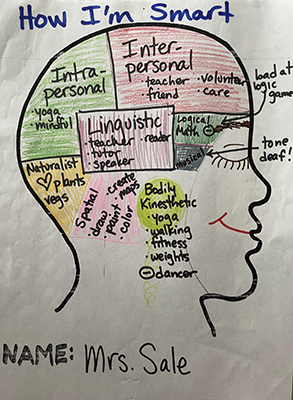 How I'm Smart
Inter-
personal
• teacher
• friend
• volunteer
• care
Intra-
personal
• yoga
• mindful
bad at
logic
games
Logical
Math
Linguistic
• teacher
• tutor
• speaker
• reader
Musical
tone
deaf!
Naturalist
plants
vegs
Spatial
• draw
• paint
• color
• create
maps
Bodily
Kinesthetic
• yoga
• walking
• fitness
• weights
dancer
NAME: Mrs. Sale